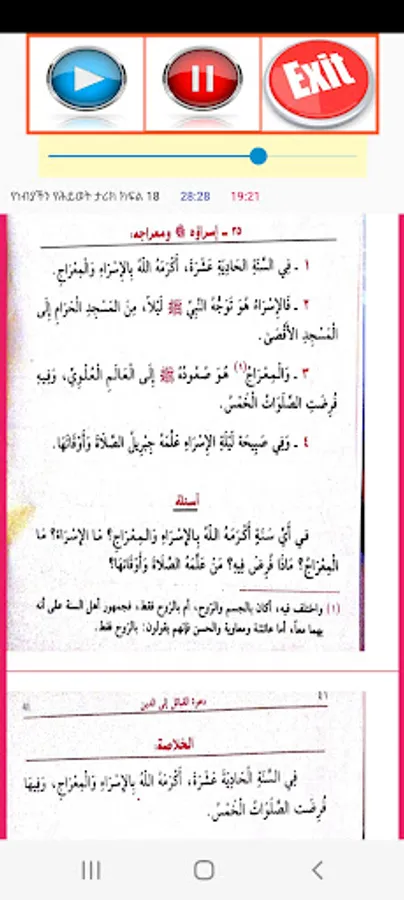 Exit
የነብያችን የሕይወት ታሪክ ክፍል 18 28:28 19:21
٢٥ ـ إسراؤه ﷺ ومعراجه:
١ ـ فِي السَّنَةِ الْحَادِيَةِ عَشْرَةَ، أَكْرَمَهُ اللَّهُ بِالإِسْرَاءِ وَالْمِعْرَاجِ.
٢ ـ فَالإِسْرَاءُ هُوَ تَوَجُّهُ النَّبِيِّ ﷺ لَيْلاً، مِنَ الْمَسْجِدِ الْحَرَامِ إِلَى
الْمَسْجِدِ الأَقْصَىٰ.
٣ ـ وَالْمِعْرَاجُ(١) هُوَ صُعُودُهُ ﷺ إِلَى الْعَالَمِ الْعُلْوِيِّ، وَفِيهِ
فُرِضَتِ الصَّلَوَاتُ الْخَمْسُ.
٤ ـ وَفِي صَبِيحَةِ لَيْلَةِ الإِسْرَاءِ عَلَّمَهُ جِبْرِيلُ الصَّلَاةَ وَأَوْقَاتَهَا.
أسئلة
في أَيِّ سَنَةٍ أَكْرَمَهُ اللَّهُ بِالإِسْرَاءِ وَالْمِعْرَاجِ؟ مَا الإِسْرَاءُ؟ مَا
الْمِعْرَاجُ؟ مَاذَا فُرِضَ فِيهِ؟ مَنْ عَلَّمَهُ الصَّلَاةَ وَأَوْقَاتَهَا؟
(١) واختلف فيه، أكان بالجسم والرّوح، أم بالرّوح فقط، فجمهور أهل السنة على أنه
بهما معاً، أما عائشة ومعاوية والحسن فإنهم يقولون: بالرّوح فقط.
دعوة القبائل إلى الدين
الخلاصة:
فِي السَّنَةِ الْحَادِيَةَ عَشْرَةَ، أَكْرَمَهُ اللَّهُ بِالإِسْرَاءِ وَالْمِعْرَاجِ، وَفِيهَا
فُرِضَتِ الصَّلَوَاتُ الْخَمْسُ.